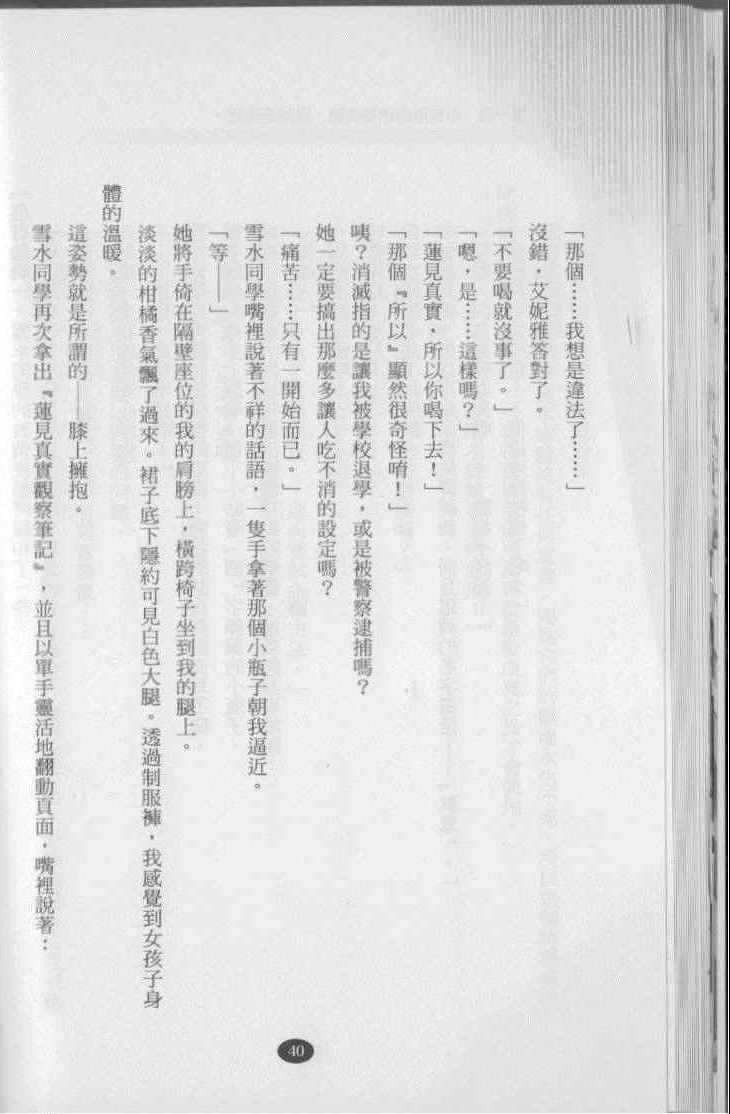 「那個……我想是違法了……」
沒錯，艾妮雅答對了。
「不要喝就沒事了。」
「嗯，是……這樣嗎？」
「蓮見真實，所以你喝下去！」
「那個『所以』顯然很奇怪唷！」
咦？消滅指的是讓我被學校退學，或是被警察逮捕嗎？
她一定要搞出那麼多讓人吃不消的設定嗎？
「痛苦……只有一開始而已。」
雪水同學嘴裡說著不祥的話語，一隻手拿著那個小瓶子朝我逼近。
「等——」
她將手倚在隔壁座位的我的肩膀上，橫跨椅子坐到我的腿上。
淡淡的柑橘香氣飄了過來。裙子底下隱約可見白色大腿。透過制服褲，我感覺到女孩子身
體的溫暖。
這姿勢就是所謂的——膝上擁抱。
雪水同學再次拿出『蓮見真實觀察筆記』，並且以單手靈活地翻動頁面，嘴裡說著：
40